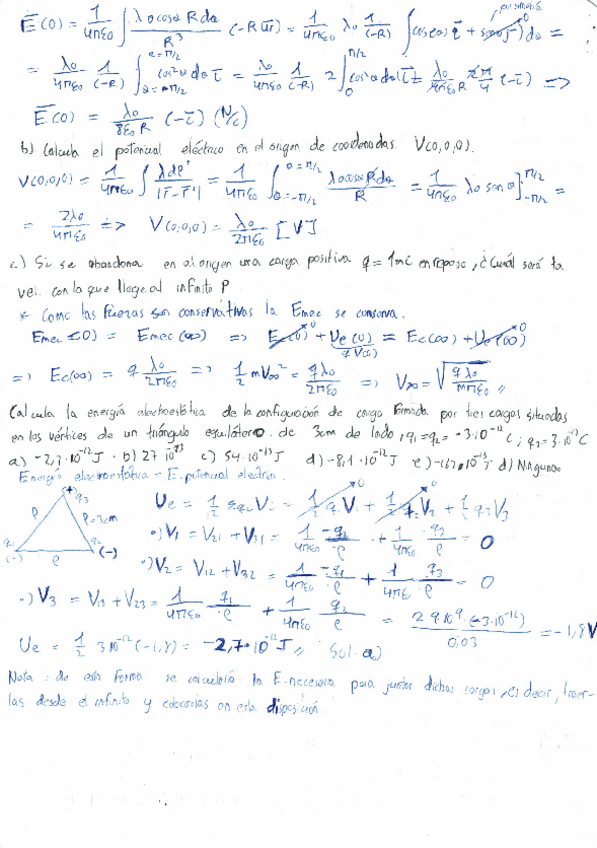 Ē(0) = 1/4πε₀ ∫ λ₀cosθ R dθ / R³ (-R ūr) = 1/4πε₀ λ₀ 1/(-R) ∫ cosθ(cosθ ī + senθ j̄) dθ = por simetría 0
= λ₀/4πε₀ 1/(-R) ∫ θ=-π/2 θ=π/2 cos²θ dθ ī = λ₀/4πε₀ 1/(-R) 2∫ 0 π/2 cos²θ dθ ī = λ₀/4πε₀R 2π/4 (-ī) =>
Ē(0) = λ₀/8ε₀R (-ī) (N/C)
b) Calcula el potencial eléctrico en el origen de coordenadas. V(0,0,0).
V(0,0,0) = 1/4πε₀ ∫ λdl'/|r̄-r̄'| = 1/4πε₀ ∫ θ=-π/2 θ=π/2 λ₀cosθ R dθ/R = 1/4πε₀ λ₀ sen θ]-π/2 π/2 =
= 2λ₀/4πε₀ => V(0,0,0) = λ₀/2πε₀ [V]
c) Si se abandona en el origen una carga positiva q = 1mC en reposo, ¿Cuál será la
vel. con la que llege al infinito?
* Como las fuerzas son conservativas la Emec se conserva.
Emec(0) = Emec(∞) => Ec(0) 0 + Ue(0) qV(0) = Ec(∞) + Ue(∞) 0
=> Ec(∞) = q λ₀/2πε₀ => 1/2 mV∞² = qλ₀/2πε₀ => V∞ = √qλ₀/mπε₀ //
Calcula la energía electrostática de la configuración de carga formada por tres cargas situadas
en los vértices de un triángulo equilátero de 3cm de lado, q₁=q₂= -3·10⁻¹² C; q₃=3·10⁻¹² C
a) -2,7·10⁻¹² J b) 27 10⁻¹³ c) 54·10⁻¹³ J d) -8,1·10⁻¹² J e) -162·10⁻¹³ J d) Ninguna
Energía electrostática = E. potencial electrica.
(+) q₃
l l=3cm
q₁ (-) l q₂ (-)
Ue = 1/2 Σqᵢ Vᵢ = 1/2 q₁V₁ 0 + 1/2 q₂V₂ 0 + 1/2 q₃V₃
·) V₁ = V₂₁ + V₃₁ = 1/4πε₀ -q₂/l + 1/4πε₀ q₃/l = 0
·) V₂ = V₁₂ + V₃₂ = 1/4πε₀ -q₁/l + 1/4πε₀ q₃/l = 0
·) V₃ = V₁₃ + V₂₃ = 1/4πε₀ q₁/l + 1/4πε₀ q₂/l = 2·9·10⁹·(-3·10⁻¹²)/0,03 = -1,8V
Ue = 1/2 3·10⁻¹² (-1,8) = -2,7·10⁻¹² J // Sol: a)
Nota: de esta forma se calcularía la E. necesaria para juntar dichas cargas, es decir, traer-
las desde el infinito y colocarlas en esta disposición.